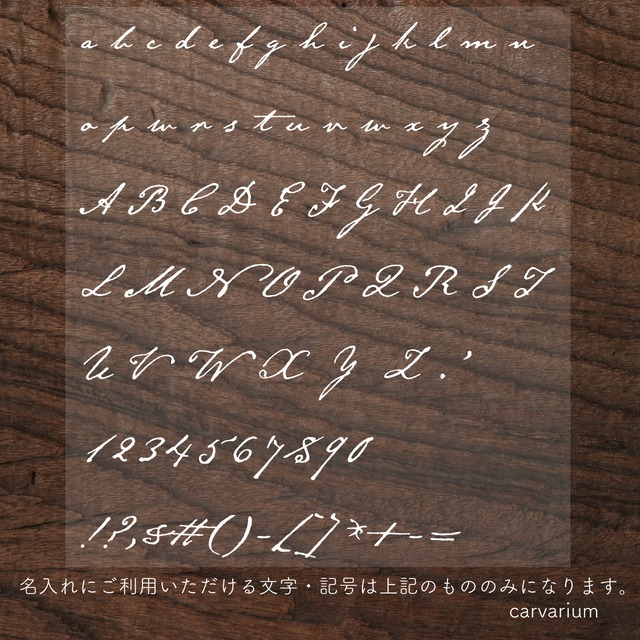 a b c d e f g h i j k l m n
o p w r s t u v w x y z
A B C D E F G H I J K
L M N O P Q R S T
U V W X Y Z . '
1 2 3 4 5 6 7 8 9 0
! ? , & # ( ) - [ ] * + - =
名入れにご利用いただける文字・記号は上記のもののみになります。
carvarium